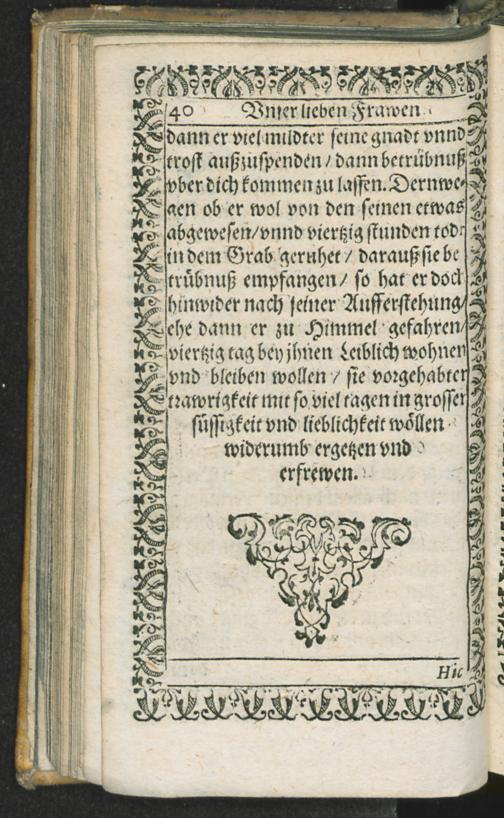 40 Vnser lieben Frawen
dann er viel mildter seine gnadt vnnd
trost außzuspenden / dann betrübnuß
vber dich kommen zu lassen. Dernwe-
gen ob er wol von den seinen etwas
abgewesen / vnnd viertzig stunden todt
in dem Grab geruhet / darauß sie be
trübnuß empfangen / so hat er doch
hinwider nach seiner Aufferstehung /
ehe dann er zu Himmel gefahren /
viertzig tag bey jhnen Leiblich wohnen
vnd bleiben wollen / sie vorgehabter
trawrigkeit mit so viel tagen in grosser
süssigkeit vnd lieblichkeit wöllen
widerumb ergetzen vnd
erfrewen.
Hic